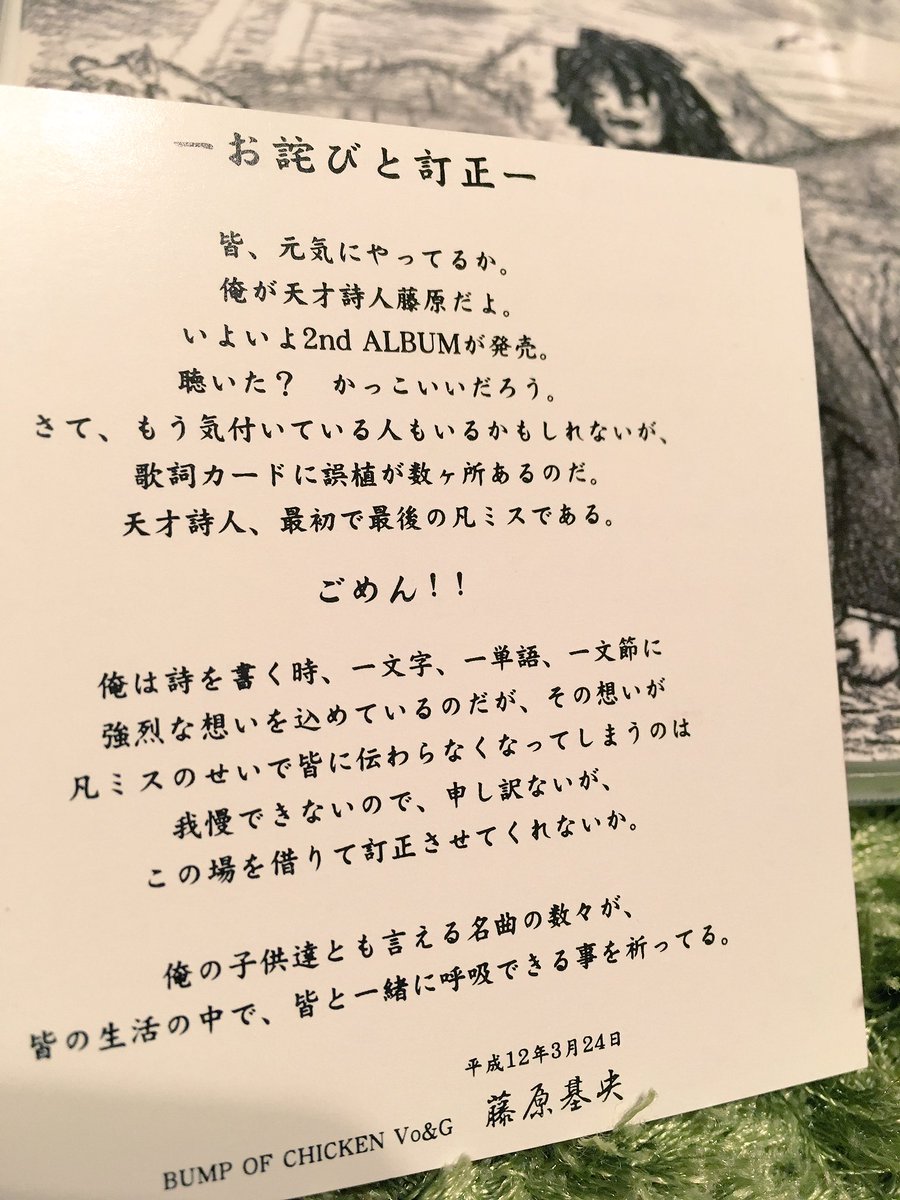 ーお詫びと訂正ー
皆、元気にやってるか。
俺が天才詩人藤原だよ。
いよいよ2nd ALBUMが発売。
聴いた？　かっこいいだろう。
さて、もう気付いている人もいるかもしれないが、
歌詞カードに誤植が数ヶ所あるのだ。
天才詩人、最初で最後の凡ミスである。
ごめん！！
俺は詩を書く時、一文字、一単語、一文節に
強烈な想いを込めているのだが、その想いが
凡ミスのせいで皆に伝わらなくなってしまうのは
我慢できないので、申し訳ないが、
この場を借りて訂正させてくれないか。
俺の子供達とも言える名曲の数々が、
皆の生活の中で、皆と一緒に呼吸できる事を祈ってる。
平成12年3月24日
BUMP OF CHICKEN Vo&G 藤原基央